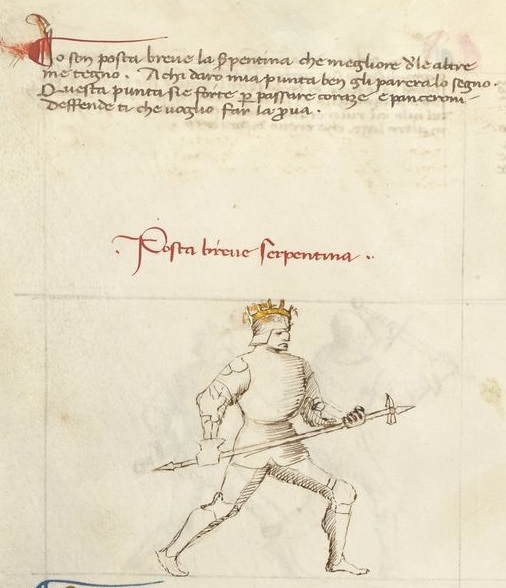 Io son posta breve la serpentina che megliore dele altre
me tegno. A chi daro mia punta ben gli parera lo segno.
Questa punta si e forte per passare coraze e panceroni
deffende ti che voglio far la prova.
Posta breve serpentina